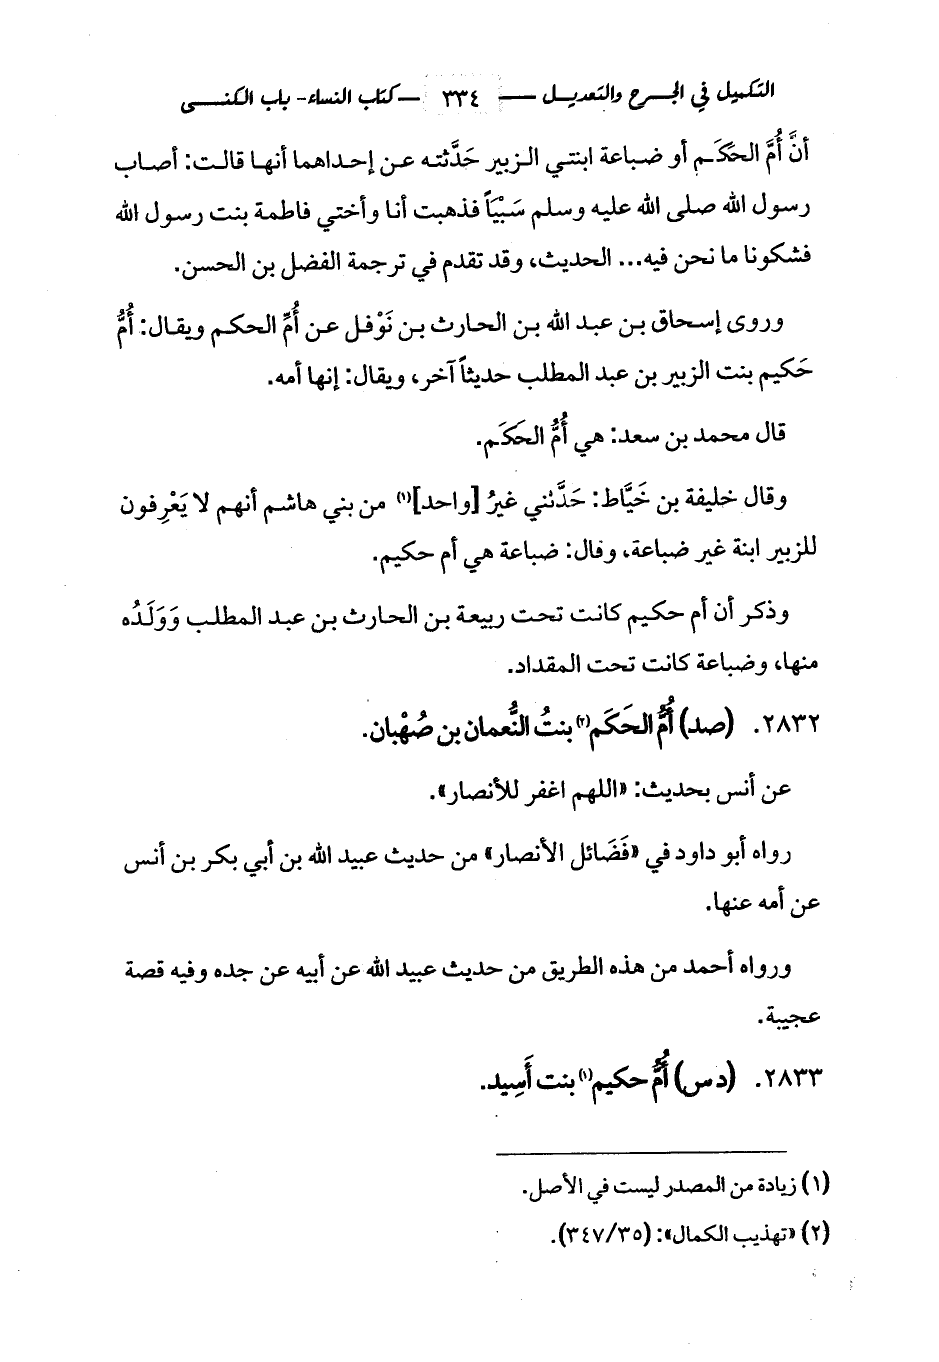 التكميل في الجرح والتعديل — ٣٣٤ — كتاب النساء - باب الكنى
أنَّ أُمَّ الحَكَم أو ضباعة ابنتي الزبير حَدَّثته عن إحداهما أنها قالت: أصاب
رسول الله صلى الله عليه وسلم سَبْيَاً فذهبت أنا وأختي فاطمة بنت رسول الله
فشكونا ما نحن فيه... الحديث، وقد تقدم في ترجمة الفضل بن الحسن.
وروى إسحاق بن عبد الله بن الحارث بن نَوْفل عن أُمِّ الحكم ويقال: أُمُّ
حَكيم بنت الزبير بن عبد المطلب حديثاً آخر، ويقال: إنها أمه.
قال محمد بن سعد: هي أُمُّ الحَكَم.
وقال خليفة بن خَيَّاط: حَدَّثني غيرُ [واحد](١) من بني هاشم أنهم لا يَعْرِفون
للزبير ابنة غير ضباعة، وقال: ضباعة هي أم حكيم.
وذكر أن أم حكيم كانت تحت ربيعة بن الحارث بن عبد المطلب وَوَلَدُه
منها، وضباعة كانت تحت المقداد.
٢٨٣٢. (صد) أُمُّ الحَكَم(٢) بنتُ النُّعمان بن صُهْبان.
عن أنس بحديث: «اللهم اغفر للأنصار».
رواه أبو داود في «فَضَائل الأنصار» من حديث عبيد الله بن أبي بكر بن أنس
عن أمه عنها.
ورواه أحمد من هذه الطريق من حديث عبيد الله عن أبيه عن جده وفيه قصة
عجيبة.
٢٨٣٣. (د س) أُمُّ حكيم(١) بنت أَسِيد.
(١) زيادة من المصدر ليست في الأصل.
(٢) «تهذيب الكمال»: (٣٤٧/٣٥).